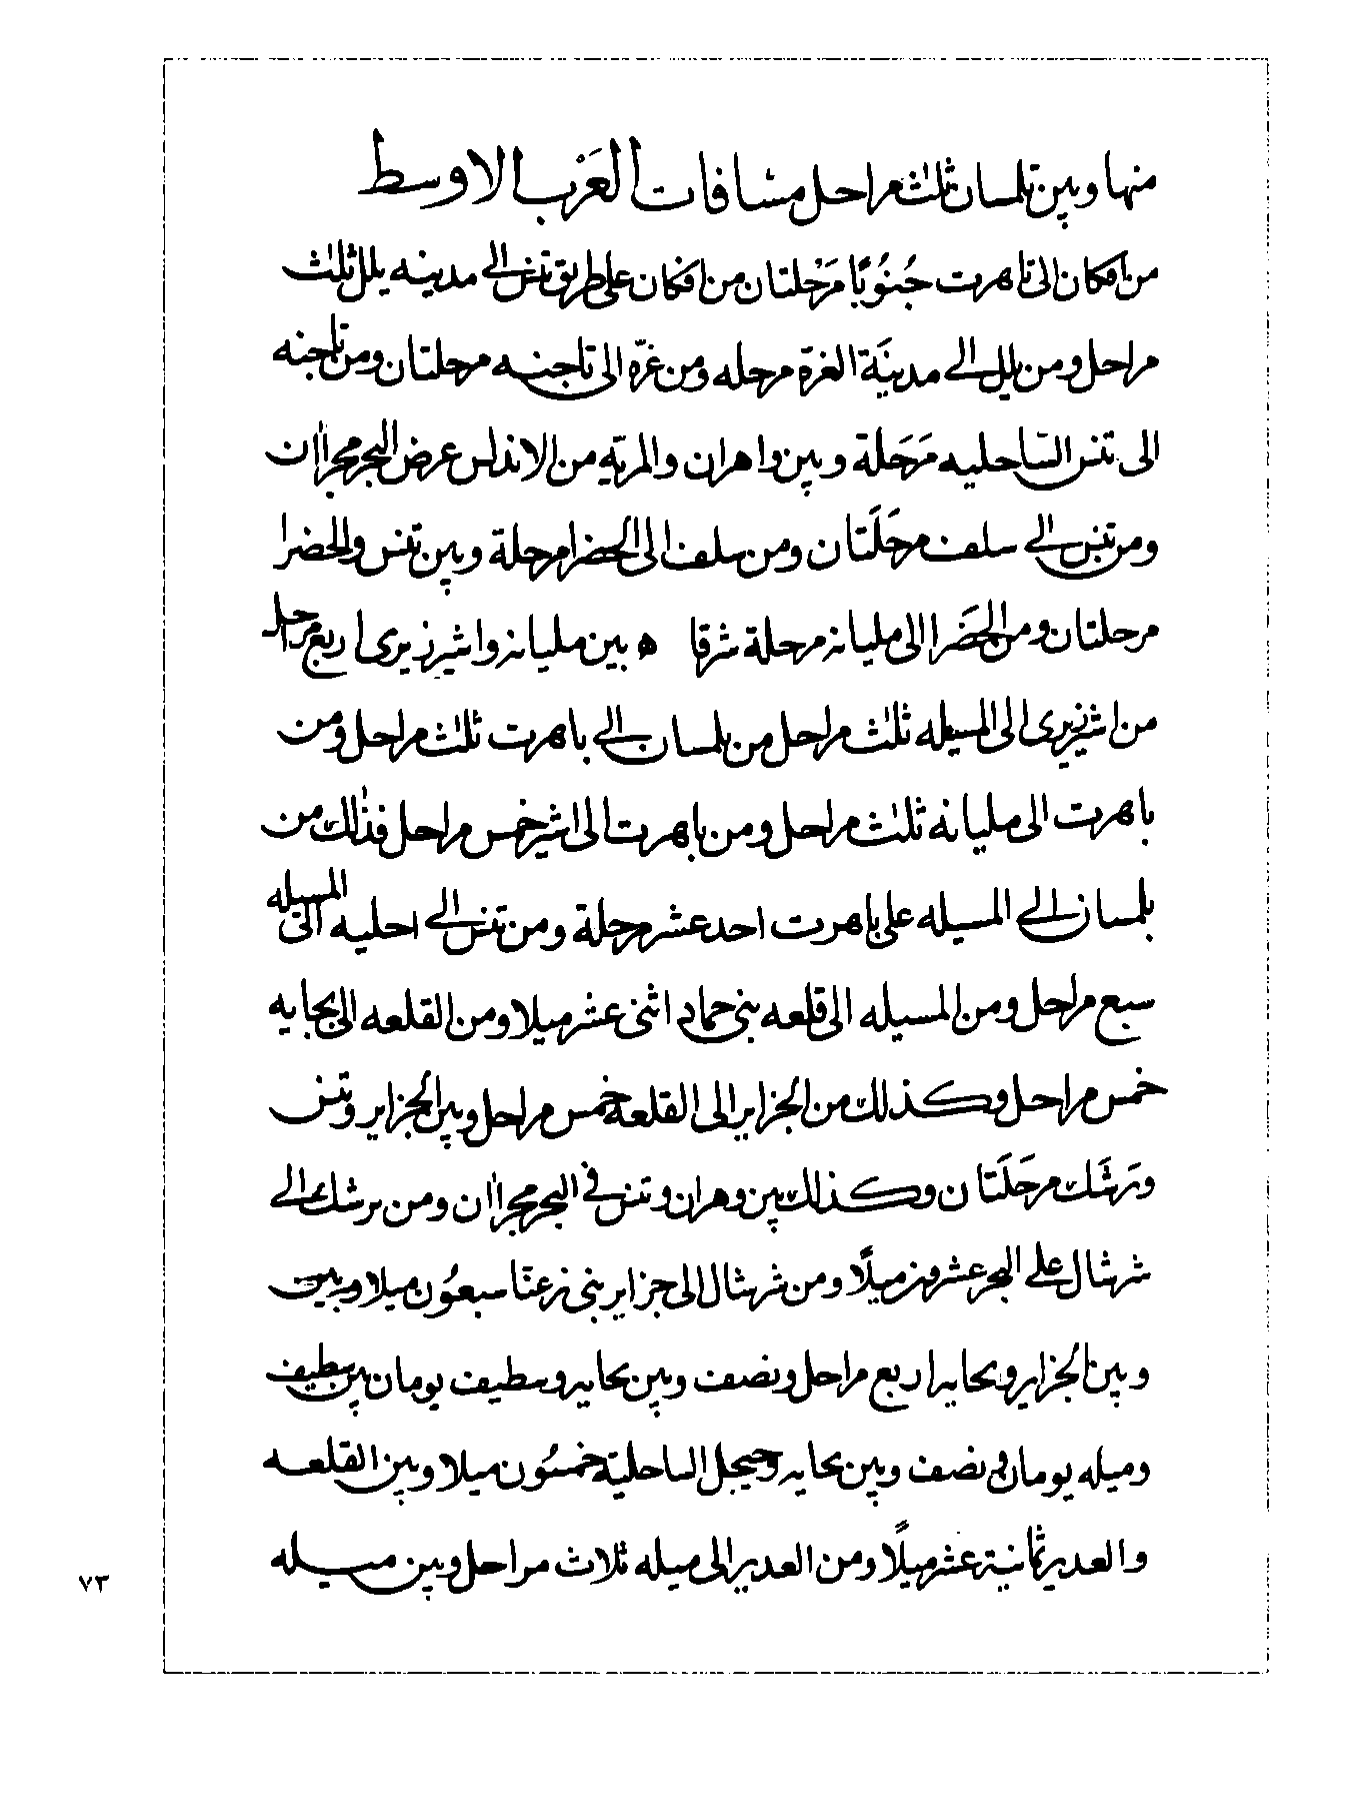 منها وبين تلمسان ثلث مراحل مسافات الغرب الاوسط
من افكان الى تاهرت جنوبا مرحلتان من افكان على طريق تنس الى مدينه يلل ثلث
مراحل ومن يلل الى مدينة الغزة مرحله ومن غزه الى تاجنه مرحلتان ومن تاجنه
الى تنس الساحليه مرحلة وبين واهران والمريه من الاندلس عرض البحر مجراان
ومن تنس الى سلف مرحلتان ومن سلف الى الخضرا مرحلة وبين تنس والخضرا
مرحلتان ومن الخضرا الى مليانه مرحلة شرقا ه بين مليانه واشير زيرى اربع مراحل
من اشير زيرى الى المسيله ثلث مراحل من تلمسان الى باهرت ثلث مراحل ومن
باهرت الى مليانه ثلث مراحل ومن باهرت الى اشير خمس مراحل فذلك من
تلمسان الى المسيله على باهرت احد عشر مرحلة ومن تنس الى احليه التى المسيله
سبع مراحل ومن المسيله الى قلعه بنى حماد اثنى عشر ميلا ومن القلعه الى بجايه
خمس مراحل وكذلك من الجزاير الى القلعه خمس مراحل وبين الجزاير وتنس
وبرشك مرحلتان وكذلك بين وهران وتنس فى البحر مجراان ومن برشك الى
شرشال على البحر عشرون ميلا ومن شرشال الى جزاير بنى زغنا سبعون ميلا وبين
وبين الجزاير وبجايه اربع مراحل ونصف وبين بجايه وسطيف يومان بين سطيف
وميله يومان فى نصف وبين بجايه وجيجل الساحلية خمسون ميلا وبين القلعه
والغدير ثمانية عشر ميلا ومن الغدير الى ميله ثلاث مراحل وبين ميله
٧٣